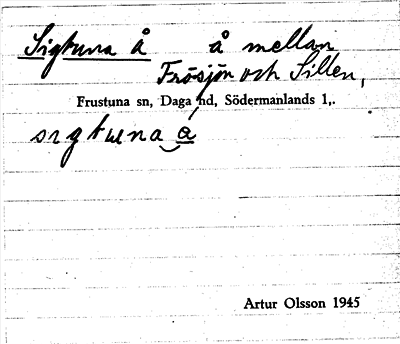 Sigtuna å å mellan
Frösjön och Sillen,
Frustuna sn, Daga hd, Södermanlands l,.
sigtuna å
Artur Olsson 1945